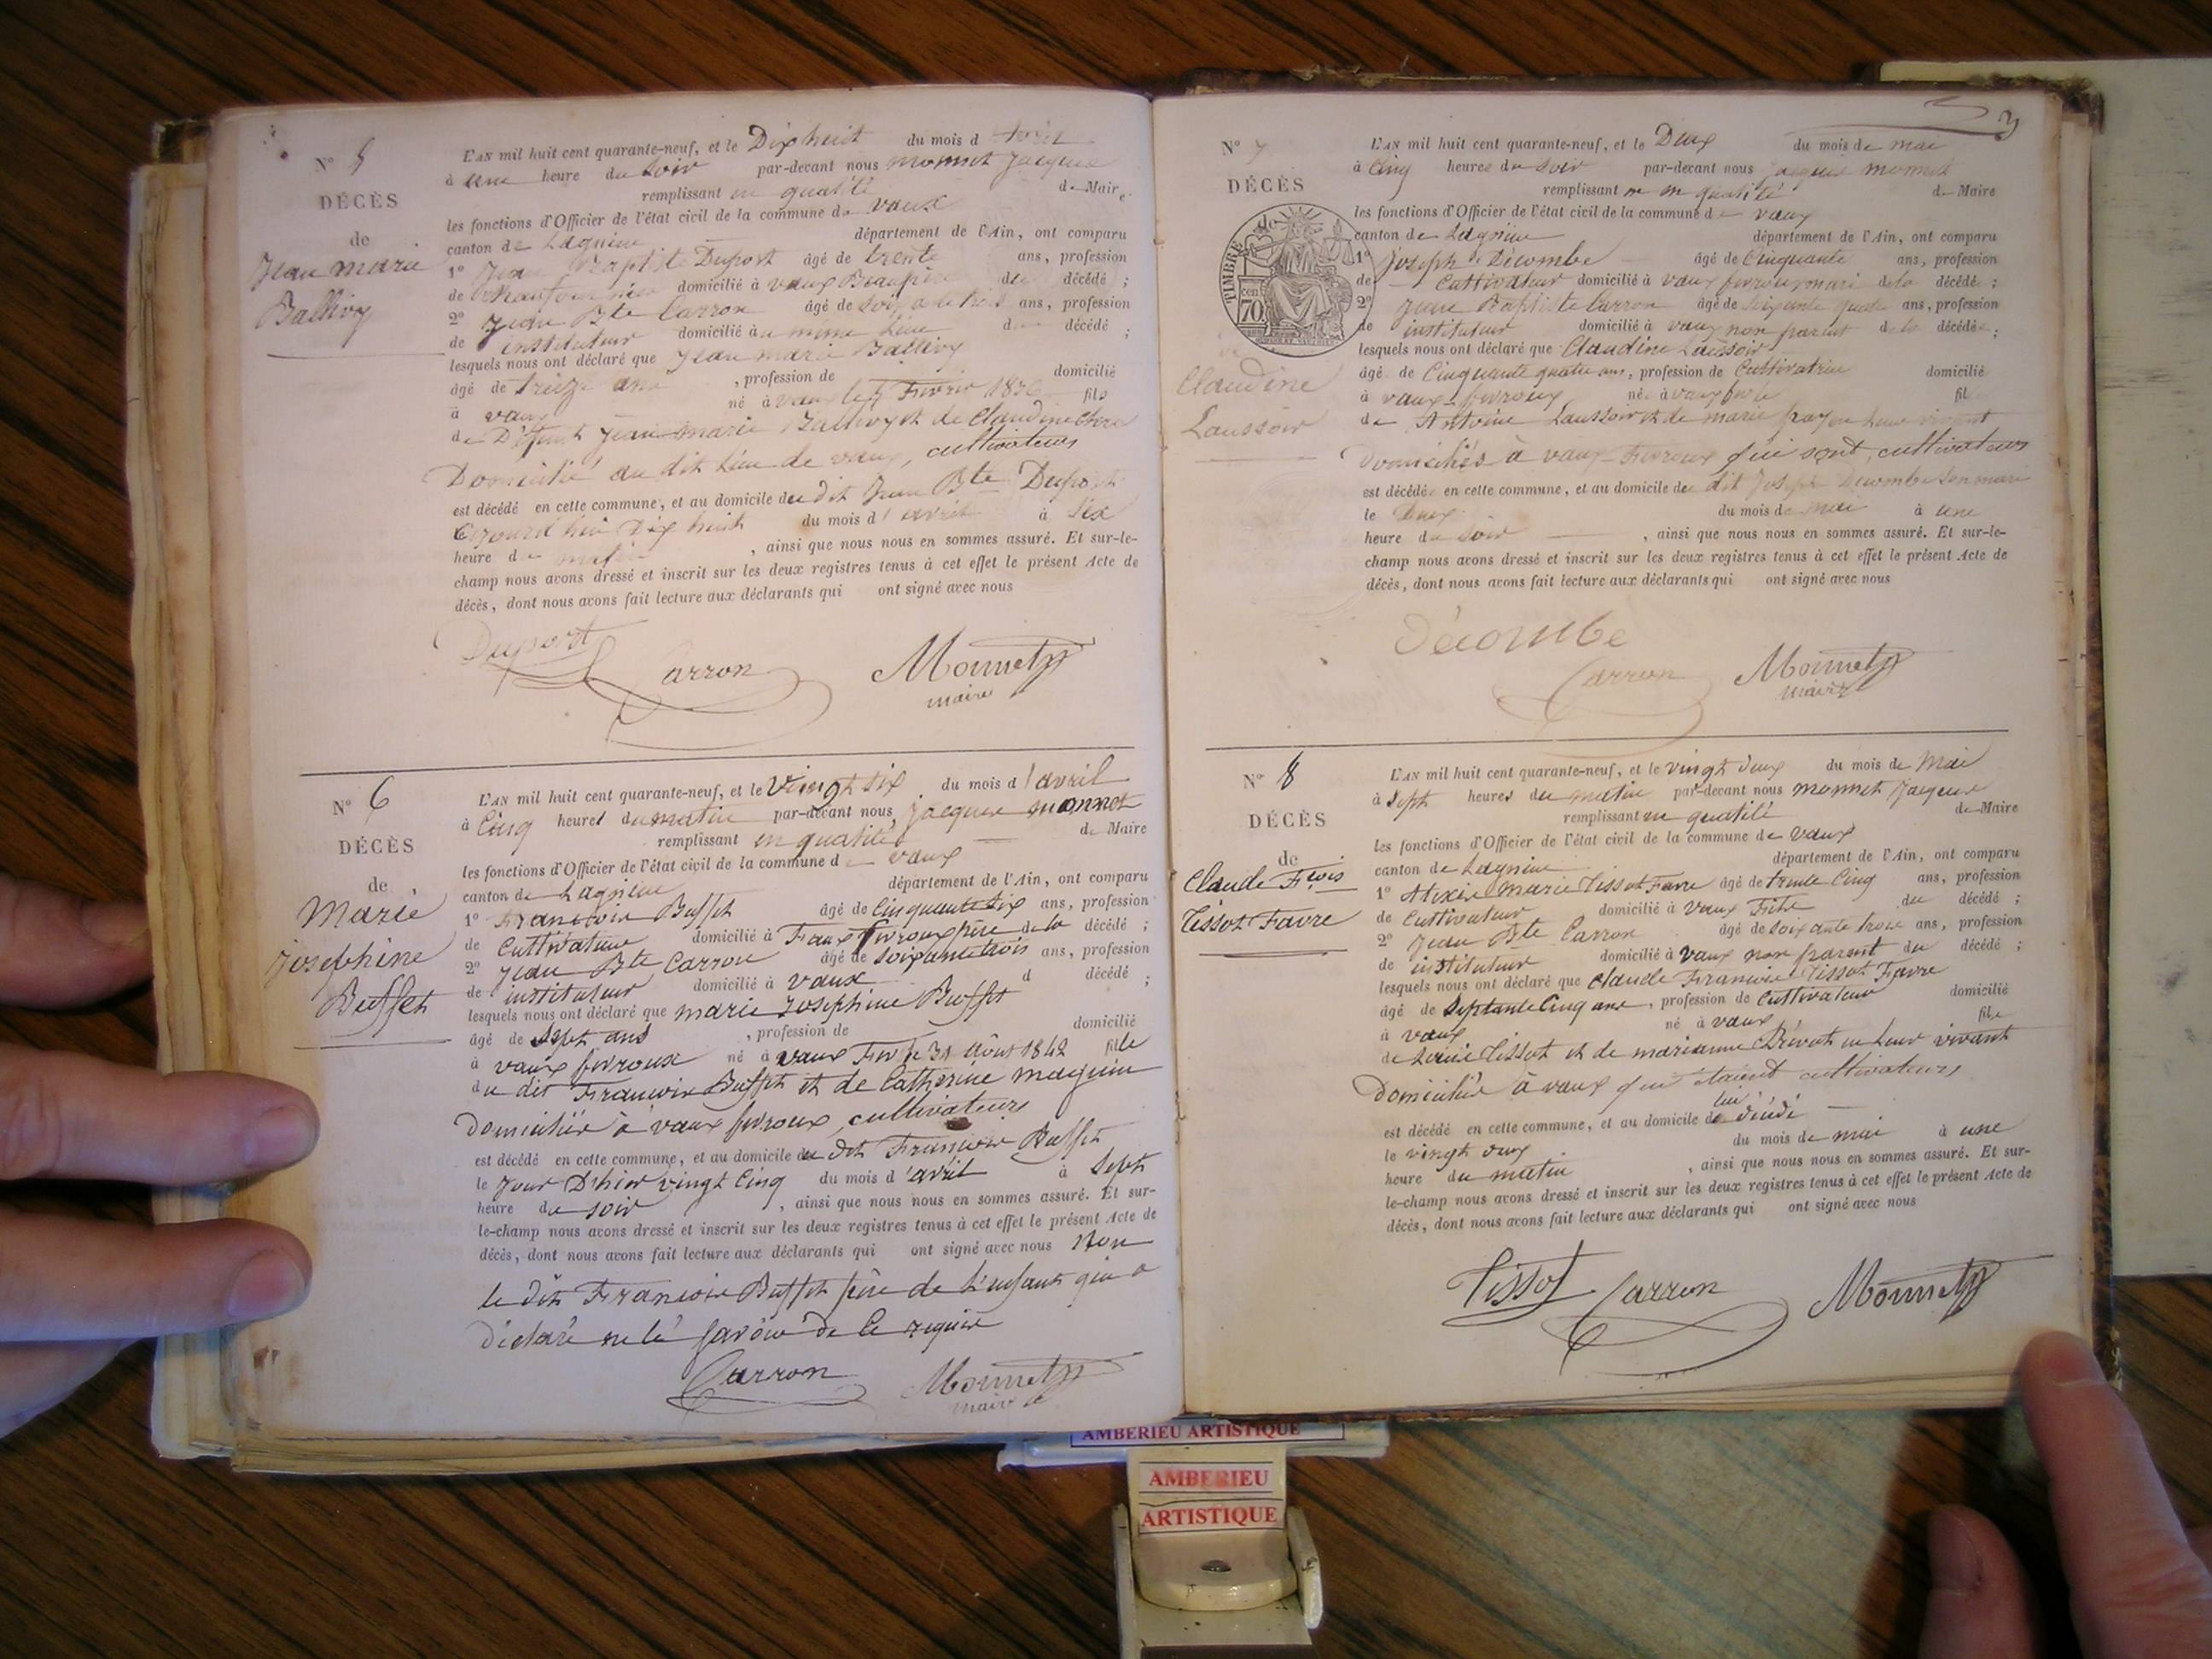 N° 5
DÉCÈS
de
Jean marie
Ballivy
L'AN mil huit cent quarante-neuf, et le Dix huit du mois d avril
à une heure du soir par-devant nous monnet Jacques
remplissant en qualité de Maire
les fonctions d'Officier de l'état civil de la commune de vaux
canton de Lagnieu département de l'Ain, ont comparu
1° Jean Baptiste Duport âgé de trente ans, profession
de domicilié à vaux Beaupère du décédé ;
2° Jean Bte Carron âgé de soixante trois ans, profession
de instituteur domicilié au même lieu d décédé ;
lesquels nous ont déclaré que Jean marie Ballivy
âgé de treize ans , profession de domicilié
à vaux né à vaux le Fevrier fils
de Défunt Jean marie Ballivy et de Claudine
Domicilié au dit lieu de vaux, cultivateurs
est décédé en cette commune, et au domicile du dit Jean Bte Duport
cejourd'hui Dix huit du mois d'avril à six
heure de matin , ainsi que nous nous en sommes assuré. Et sur-le-
champ nous avons dressé et inscrit sur les deux registres tenus à cet effet le présent Acte de
décès, dont nous avons fait lecture aux déclarants qui ont signé avec nous
Duport Carron Monnet
maire
N° 6
DÉCÈS
de
Marie
josephine
Buffet
L'AN mil huit cent quarante-neuf, et le Vingt six du mois d'avril
à Cinq heures du matin par-devant nous, jacques monnet
remplissant en qualité de Maire
les fonctions d'Officier de l'état civil de la commune de vaux
canton de Lagnieu département de l'Ain, ont comparu
1° Francois Buffet âgé de Cinquante six ans, profession
de Cultivateur domicilié à Vaux Fevroux père de la décédé ;
2° Jean Bte Carron âgé de soixante trois ans, profession
de instituteur domicilié à vaux d décédé ;
lesquels nous ont déclaré que marie Josephine Buffet
âgé de sept ans , profession de domicilié
à vaux fevroux né à vaux Fev le 31 Août 1842 fille
du dit Francois Buffet et de Catherine maguin
Domiciliés à vaux fevroux, cultivateurs
est décédé en cette commune, et au domicile du dit Francois Buffet
le jour D'hier vingt Cinq du mois d'avril à Sept
heure du soir , ainsi que nous nous en sommes assuré. Et sur-
le-champ nous avons dressé et inscrit sur les deux registres tenus à cet effet le présent Acte de
décès, dont nous avons fait lecture aux déclarants qui ont signé avec nous Non
le dit Francois Buffet père de l'enfant qui a
déclaré ne le savoir de ce requis
Carron Monnet
maire
3
N° 7
DÉCÈS
TIMBRE de
cen 70
Claudine
Laussoir
L'AN mil huit cent quarante-neuf, et le Deux du mois de mai
à Cinq heures du soir par-devant nous jacques monnet
remplissant en qualité de Maire
les fonctions d'Officier de l'état civil de la commune de vaux
canton de Lagnieu département de l'Ain, ont comparu
1° Joseph Decombe âgé de Cinquante ans, profession
de Cultivateur domicilié à vaux fevroux mari de la décédé ;
2° Jean Baptiste Carron âgé de soixante quatre ans, profession
de instituteur domicilié à vaux non parent de la décédée ;
lesquels nous ont déclaré que Claudine Laussoir
âgé de Cinquante quatre ans, profession de Cultivatrice domicilié
à vaux-fevroux née à vaux fil
de Antoine Laussoir et de marie en leur vivant
Domiciliés à vaux-Fevroux qui sont, cultivateurs
est décédée en cette commune, et au domicile du dit Joseph Decombe son mari
le Deux du mois de mai à une
heure du soir , ainsi que nous nous en sommes assuré. Et sur-le-
champ nous avons dressé et inscrit sur les deux registres tenus à cet effet le présent Acte de
décès, dont nous avons fait lecture aux déclarants qui ont signé avec nous
Décombe
Carron Monnet
maire
N° 8
DÉCÈS
de
Claude Fçois
Tissot Favre
L'AN mil huit cent quarante-neuf, et le vingt deux du mois de Mai
à Sept heures du matin par-devant nous monnet Jacques
remplissant en qualité de Maire
les fonctions d'Officier de l'état civil de la commune de vaux
canton de Lagnieu département de l'Ain, ont comparu
1° Alexis Marie Tissot Favre âgé de trente Cinq ans, profession
de Cultivateur domicilié à Vaux Fils du décédé ;
2° Jean Bte Carron âgé de soixante trois ans, profession
de instituteur domicilié à vaux non parent du décédé ;
lesquels nous ont déclaré que Claude Francois Tissot Favre
âgé de Septante Cinq ans, profession de Cultivateur domicilié
à vaux né à vaux fils
de Tissot et de marianne en leur vivant
Domiciliés à vaux qui étaient cultivateurs
est décédé en cette commune, et au domicile de lui décédé
le vingt deux du mois de mai à une
heure du matin , ainsi que nous nous en sommes assuré. Et sur-
le-champ nous avons dressé et inscrit sur les deux registres tenus à cet effet le présent Acte de
décès, dont nous avons fait lecture aux déclarants qui ont signé avec nous
Tissot Carron Monnet
AMBERIEU ARTISTIQUE
AMBERIEU
ARTISTIQUE